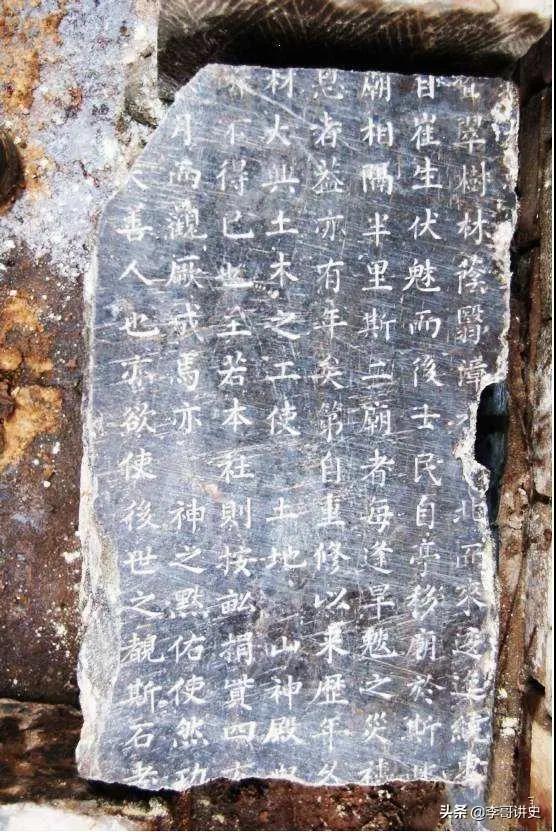 翠樹林蔭翳漳北而來迤邐繞東
崔生伏魅而後士民自亭移廟於斯
廟相隔半里斯二廟者每逢旱魃之災
恩者益亦有年矣第自重修以来歷年久
材大興土木之工使 土地 山神殿
不得已也至若本社則按畝捐貲四
月而觀厥成焉亦 神之默佑使然功
善人也亦欲使後世之覩斯石者
头条 @李哥讲史